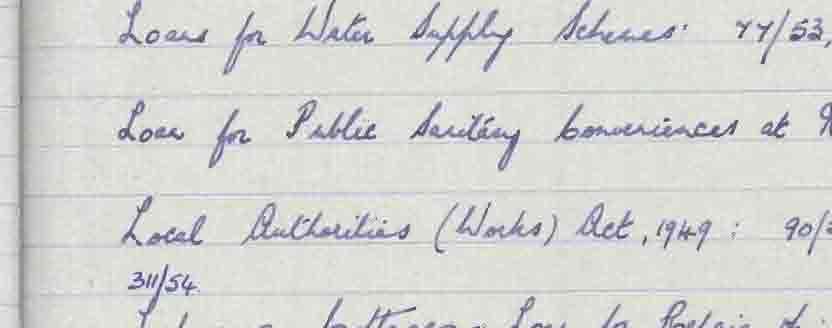 Loans for Water Supply Schemes. 77/53,
Loan for Public Sanitary Conveniences at
Local Authorities (Works) Act, 1949 : 90/
311/54.